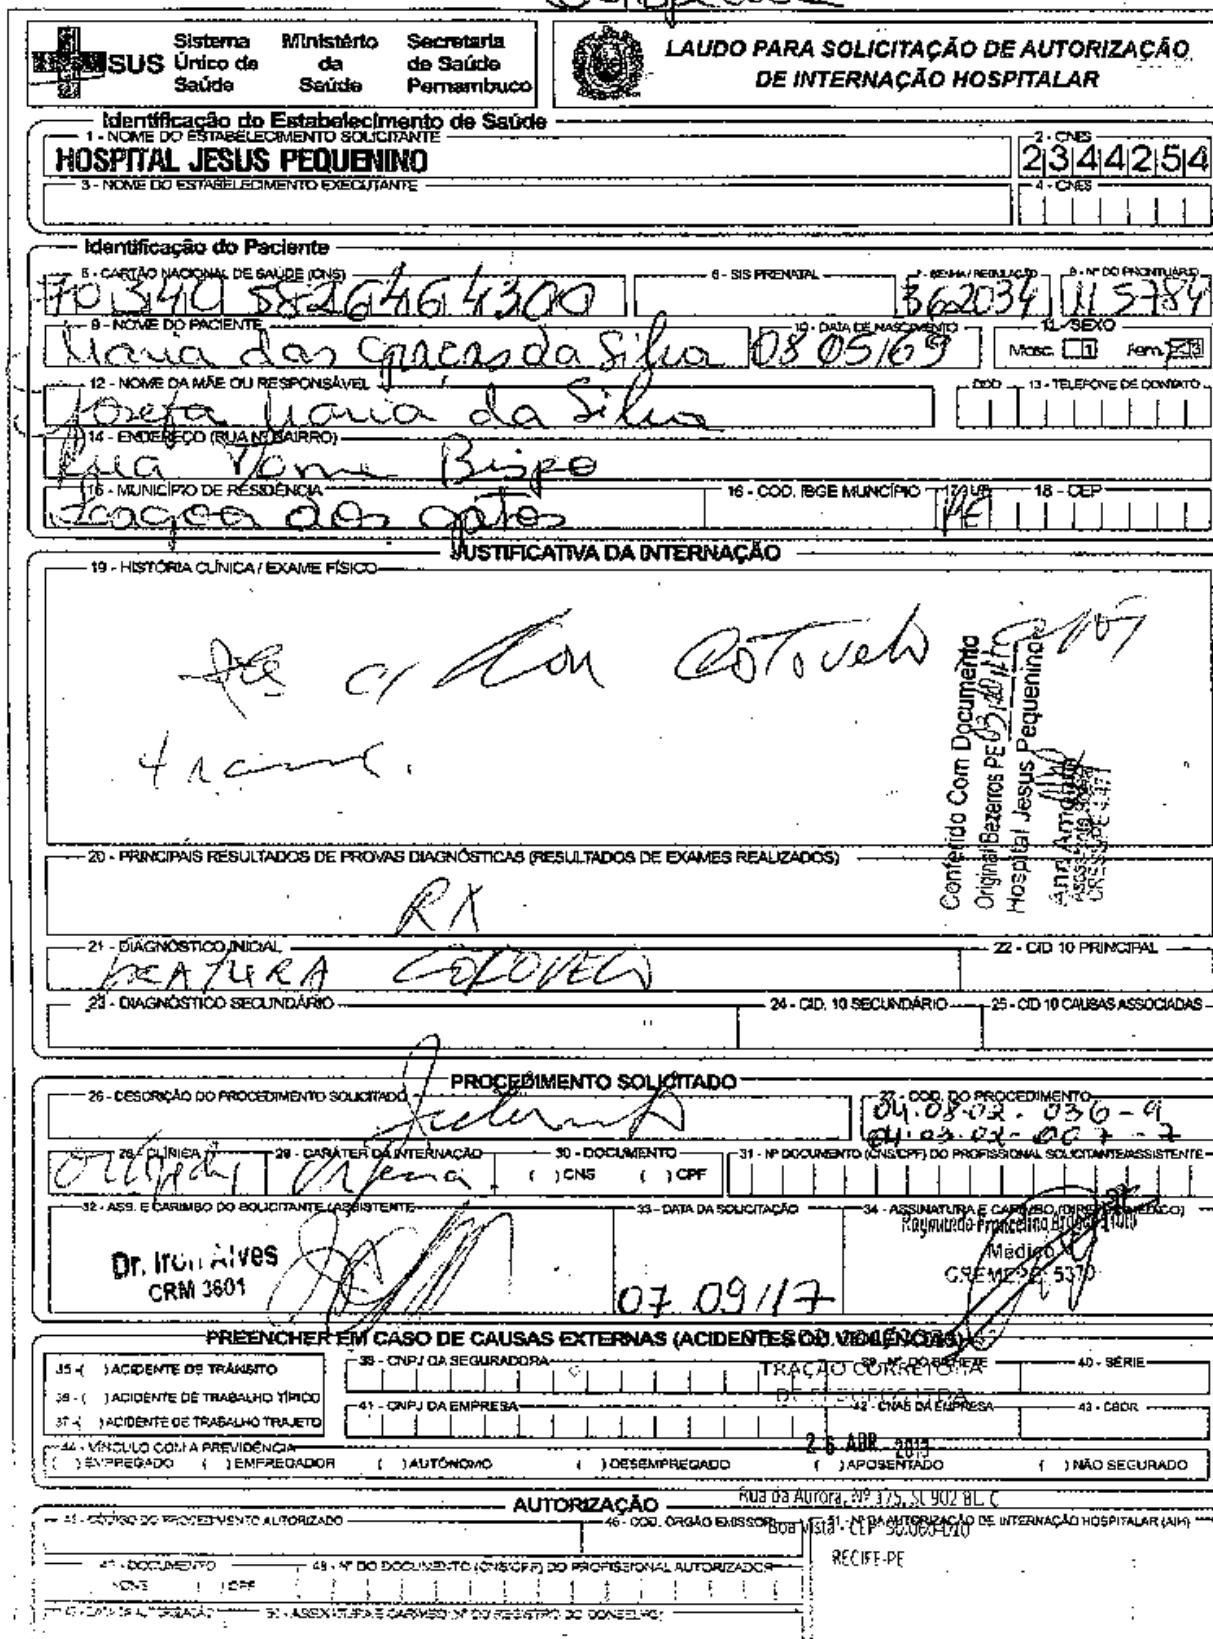 SUS Sistema Único de Saúde
Ministério da Saúde
Secretaria de Saúde Pernambuco
LAUDO PARA SOLICITAÇÃO DE AUTORIZAÇÃO
DE INTERNAÇÃO HOSPITALAR
Identificação do Estabelecimento de Saúde
1 - NOME DO ESTABELECIMENTO SOLICITANTE
2 - CNES
HOSPITAL JESUS PEQUENINO
2344254
3 - NOME DO ESTABELECIMENTO EXECUTANTE
4 - CNES
Identificação do Paciente
5 - CARTÃO NACIONAL DE SAÚDE (CNS)
6 - SIS PRENATAL
7 - SENHA / REGULAÇÃO
8 - Nº DO PRONTUÁRIO
70 340 5826464300
362034
115784
9 - NOME DO PACIENTE
10 - DATA DE NASCIMENTO
11 - SEXO
Maria das Graças da Silva
08 05/69
Masc. 1 Fem. 3
12 - NOME DA MÃE OU RESPONSÁVEL
DDD
13 - TELEFONE DE CONTATO
Josefa Maria da Silva
14 - ENDEREÇO (RUA Nº BAIRRO)
Rua Bispo
15 - MUNICÍPIO DE RESIDÊNCIA
16 - COD. IBGE MUNCÍPIO
17 - UF
18 - CEP
Lagoa dos gatos
PE
JUSTIFICATIVA DA INTERNAÇÃO
19 - HISTÓRIA CLÍNICA / EXAME FÍSICO
c/ dor cotovelo após
trauma.
Conferido Com Documento
Original Bezerros PE
Hospital Jesus Pequenino
20 - PRINCIPAIS RESULTADOS DE PROVAS DIAGNÓSTICAS (RESULTADOS DE EXAMES REALIZADOS)
RX
21 - DIAGNÓSTICO INICIAL
22 - CID 10 PRINCIPAL
FRATURA COTOVELO
23 - DIAGNÓSTICO SECUNDÁRIO
24 - CID. 10 SECUNDÁRIO
25 - CID 10 CAUSAS ASSOCIADAS
PROCEDIMENTO SOLICITADO
26 - DESCRIÇÃO DO PROCEDIMENTO SOLICITADO
27 - COD. DO PROCEDIMENTO
04.08.02.036-9
04.03.02-007-7
28 - CLÍNICA
29 - CARÁTER DA INTERNAÇÃO
30 - DOCUMENTO
31 - Nº DOCUMENTO (CNS/CPF) DO PROFISSIONAL SOLICITANTE/ASSISTENTE
( ) CNS ( ) CPF
32 - ASS. E CARIMBO DO SOLICITANTE (ASSISTENTE
33 - DATA DA SOLICITAÇÃO
34 - ASSINATURA E CARIMBO (DIRETOR MÉDICO)
Dr. Iron Alves
CRM 3601
07 09/17
Médico
CREMEPE 5370
PREENCHER EM CASO DE CAUSAS EXTERNAS (ACIDENTES OU VIOLÊNCIAS)
35 - ( ) ACIDENTE DE TRÂNSITO
36 - ( ) ACIDENTE DE TRABALHO TÍPICO
37 - ( ) ACIDENTE DE TRABALHO TRAJETO
38 - CNPJ DA SEGURADORA
39 - Nº DO BILHETE
40 - SÉRIE
TRAÇÃO CORRETORA
41 - CNPJ DA EMPRESA
42 - CNAE DA EMPRESA
43 - CBOR
44 - VÍNCULO COM A PREVIDÊNCIA
( ) EMPREGADO ( ) EMPREGADOR ( ) AUTÔNOMO ( ) DESEMPREGADO ( ) APOSENTADO ( ) NÃO SEGURADO
26 ABR
Rua da Aurora, Nº 175, SL 902 BL. C
Boa Vista - CEP 50.060-010
RECIFE-PE
AUTORIZAÇÃO
45 - CÓDIGO DO PROCEDIMENTO AUTORIZADO
46 - COD. ORGÃO EMISSOR
51 - Nº DA AUTORIZAÇÃO DE INTERNAÇÃO HOSPITALAR (AIH)
47 - DOCUMENTO
48 - Nº DO DOCUMENTO (CNS/CPF) DO PROFISSIONAL AUTORIZADOR
( ) CNS ( ) CPF
49 - DATA DA AUTORIZAÇÃO
50 - ASSINATURA E CARIMBO (Nº DO REGISTRO DO CONSELHO)